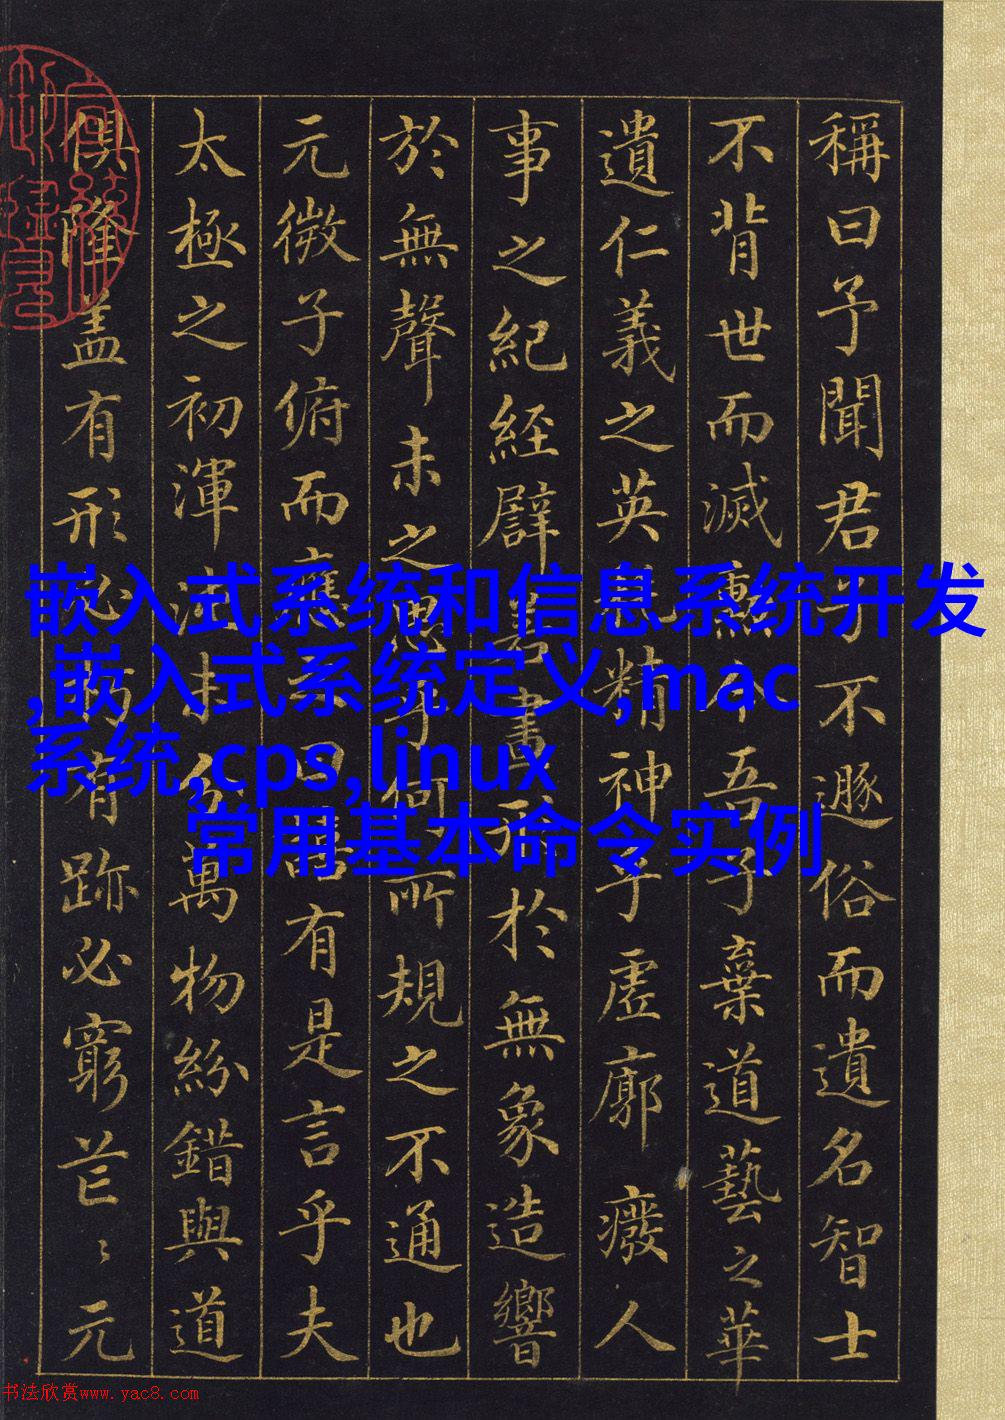 稱曰予聞君子不遯俗而遺名智士
不背世而滅勳今吾子棄道藝之華
遺仁義之英耗精神乎虛廓廢人
事之紀經譬若畫形於無象造響
於無聲未之思乎何所規之不通也
元微子俯而應之曰嘻有是言乎夫
太極之初渾沌未分萬物紛錯與道
俱隆盖有形必朽有跡必窮芒〻元
嵌入式系统和信息系统开发
,嵌入式系统定义,mac
系统,cps,linux
常用基本命令实例
书法欣赏www.yac8.com